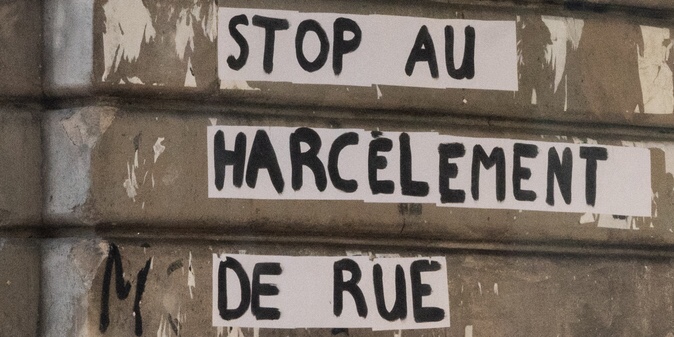 STOP AU
HARCÈLEMENT
DE RUE